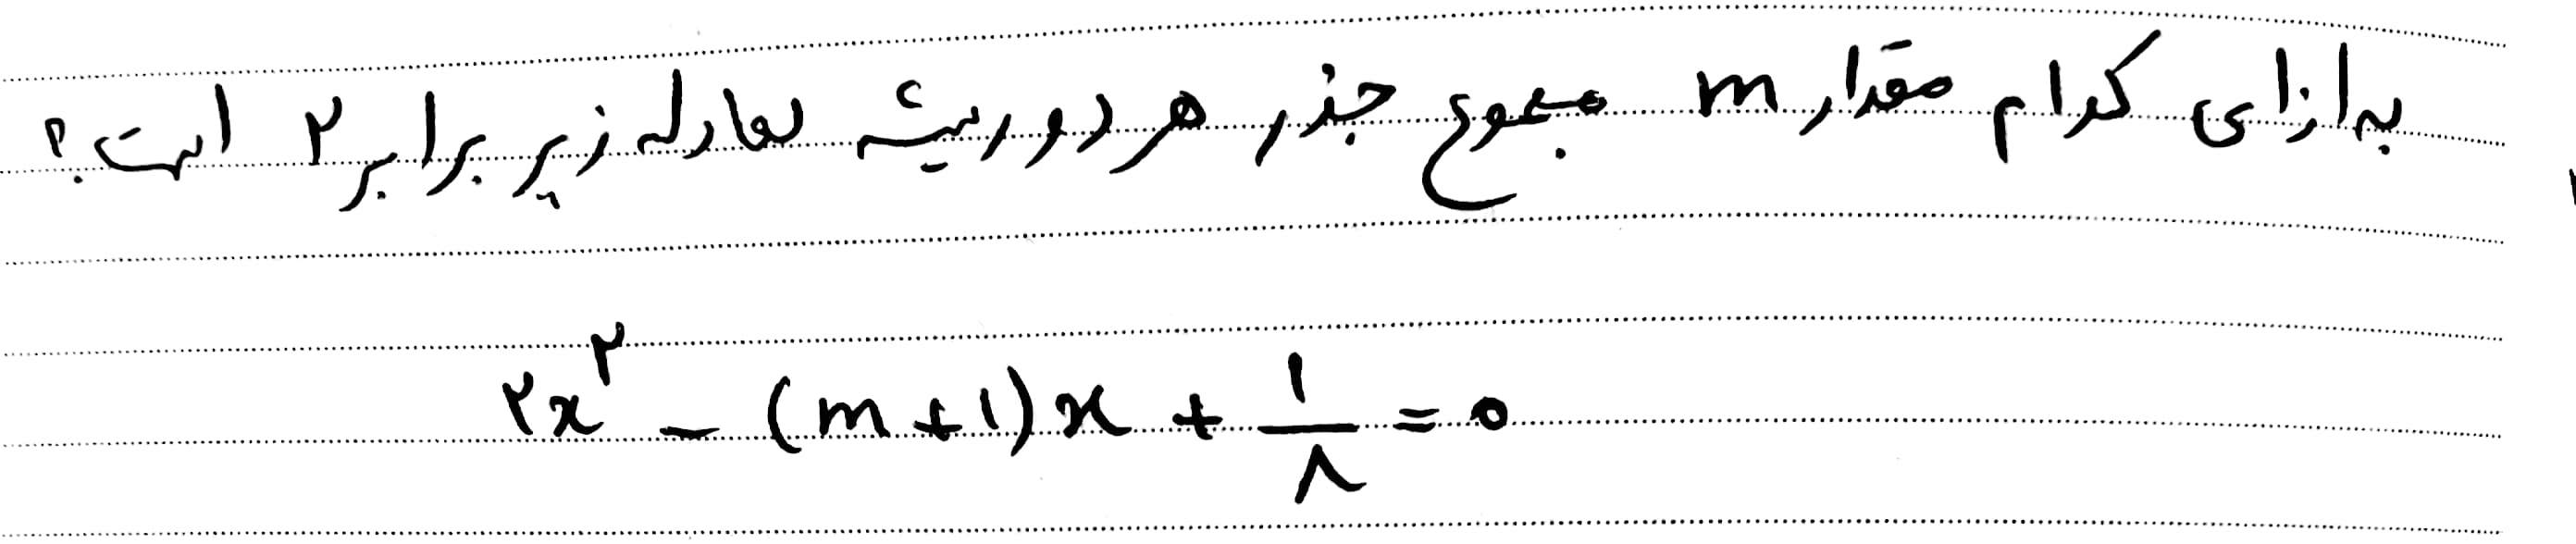 به ازای کدام مقدار m مجموع جذر هر دو ریشه معادله زیر برابر ۲ است؟
۲x^۲ - (m+۱)x + ۱/۸ = ۰